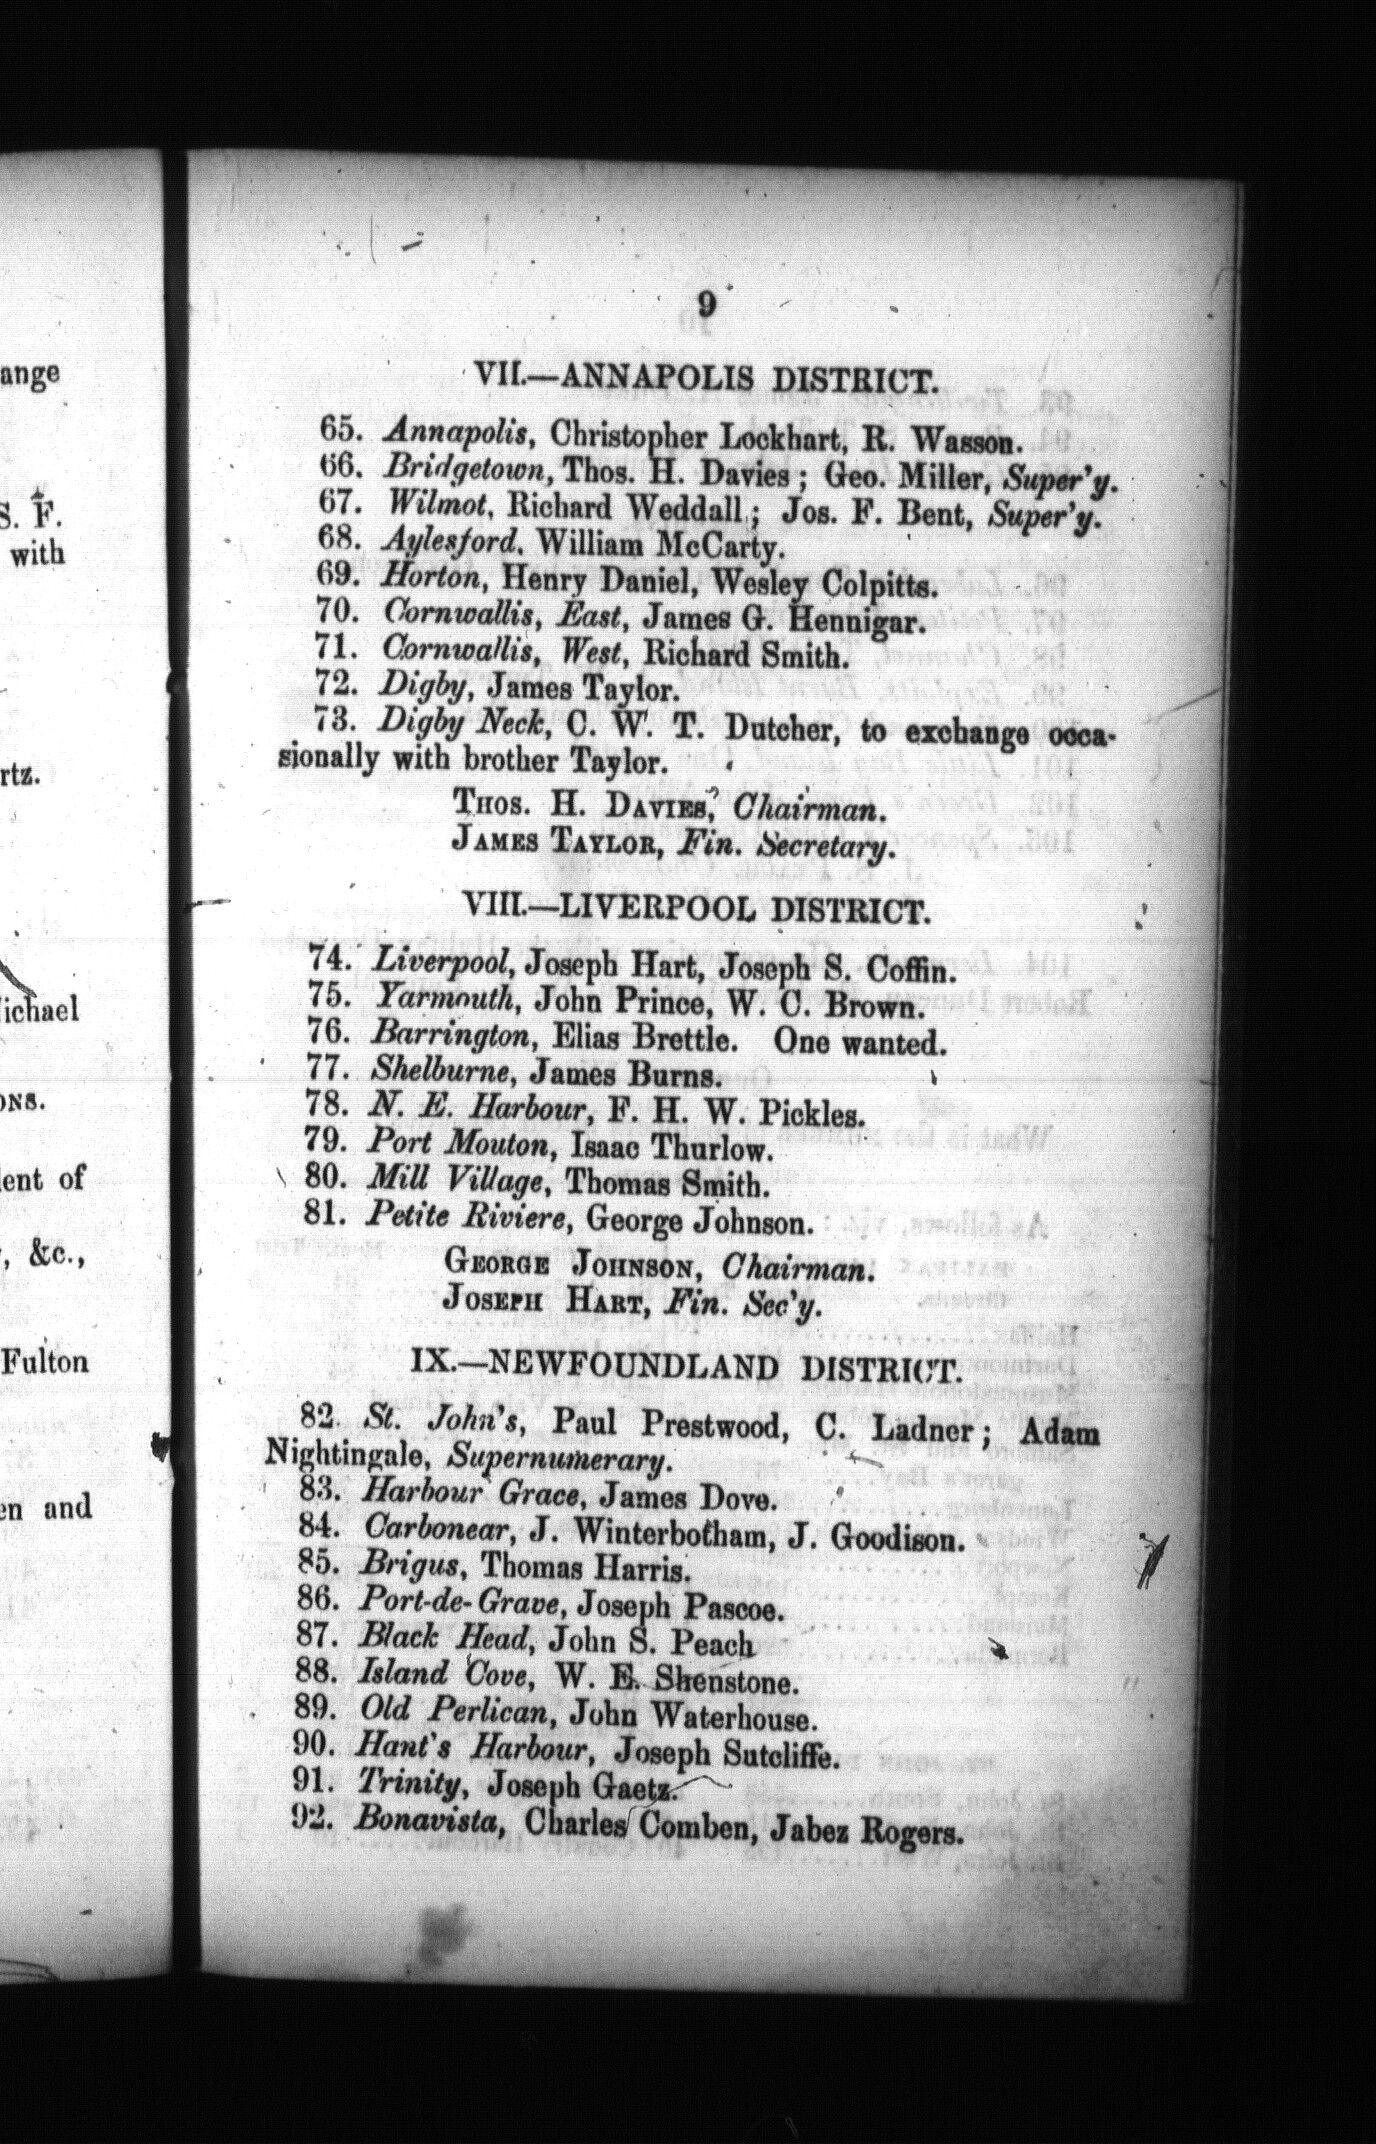 ange
S. F.
with
rtz.
ichael
ONS.
ent of
, &c.,
Fulton
en and
9
VII.—ANNAPOLIS DISTRICT.
65. Annapolis, Christopher Lockhart, R. Wasson.
66. Bridgetown, Thos. H. Davies; Geo. Miller, Super'y.
67. Wilmot, Richard Weddall; Jos. F. Bent, Super'y.
68. Aylesford, William McCarty.
69. Horton, Henry Daniel, Wesley Colpitts.
70. Cornwallis, East, James G. Hennigar.
71. Cornwallis, West, Richard Smith.
72. Digby, James Taylor.
73. Digby Neck, C. W. T. Dutcher, to exchange occa-
sionally with brother Taylor.
THOS. H. DAVIES, Chairman.
JAMES TAYLOR, Fin. Secretary.
VIII.—LIVERPOOL DISTRICT.
74. Liverpool, Joseph Hart, Joseph S. Coffin.
75. Yarmouth, John Prince, W. C. Brown.
76. Barrington, Elias Brettle. One wanted.
77. Shelburne, James Burns.
78. N. E. Harbour, F. H. W. Pickles.
79. Port Mouton, Isaac Thurlow.
80. Mill Village, Thomas Smith.
81. Petite Riviere, George Johnson.
GEORGE JOHNSON, Chairman.
JOSEPH HART, Fin. Sec'y.
IX.—NEWFOUNDLAND DISTRICT.
82. St. John's, Paul Prestwood, C. Ladner; Adam
Nightingale, Supernumerary.
83. Harbour Grace, James Dove.
84. Carbonear, J. Winterbotham, J. Goodison.
85. Brigus, Thomas Harris.
86. Port-de-Grave, Joseph Pascoe.
87. Black Head, John S. Peach
88. Island Cove, W. E. Shenstone.
89. Old Perlican, John Waterhouse.
90. Hant's Harbour, Joseph Sutcliffe.
91. Trinity, Joseph Gaetz.
92. Bonavista, Charles Comben, Jabez Rogers.